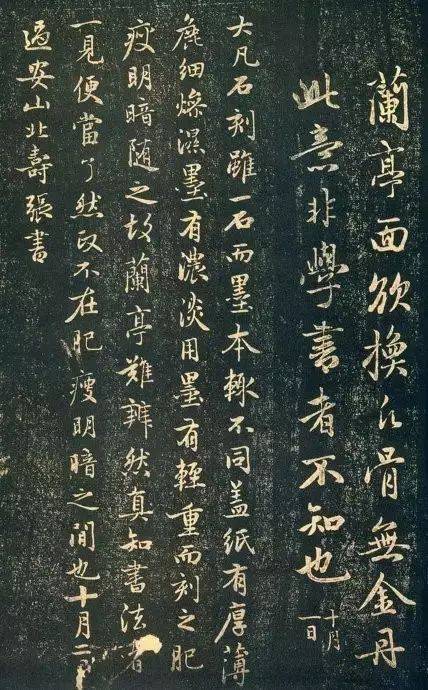 蘭亭面欲換凡骨無金丹
此意非學書者不知也
十月
一日
大凡石刻雖一石而墨本輙不同盖紙有厚薄
麁細燥濕墨有濃淡用墨有輕重而刻之肥
瘦明暗随之故蘭亭難辨然真知書法者
一見便當了然政不在肥瘦明暗之間也十月二日
過安山北壽張書